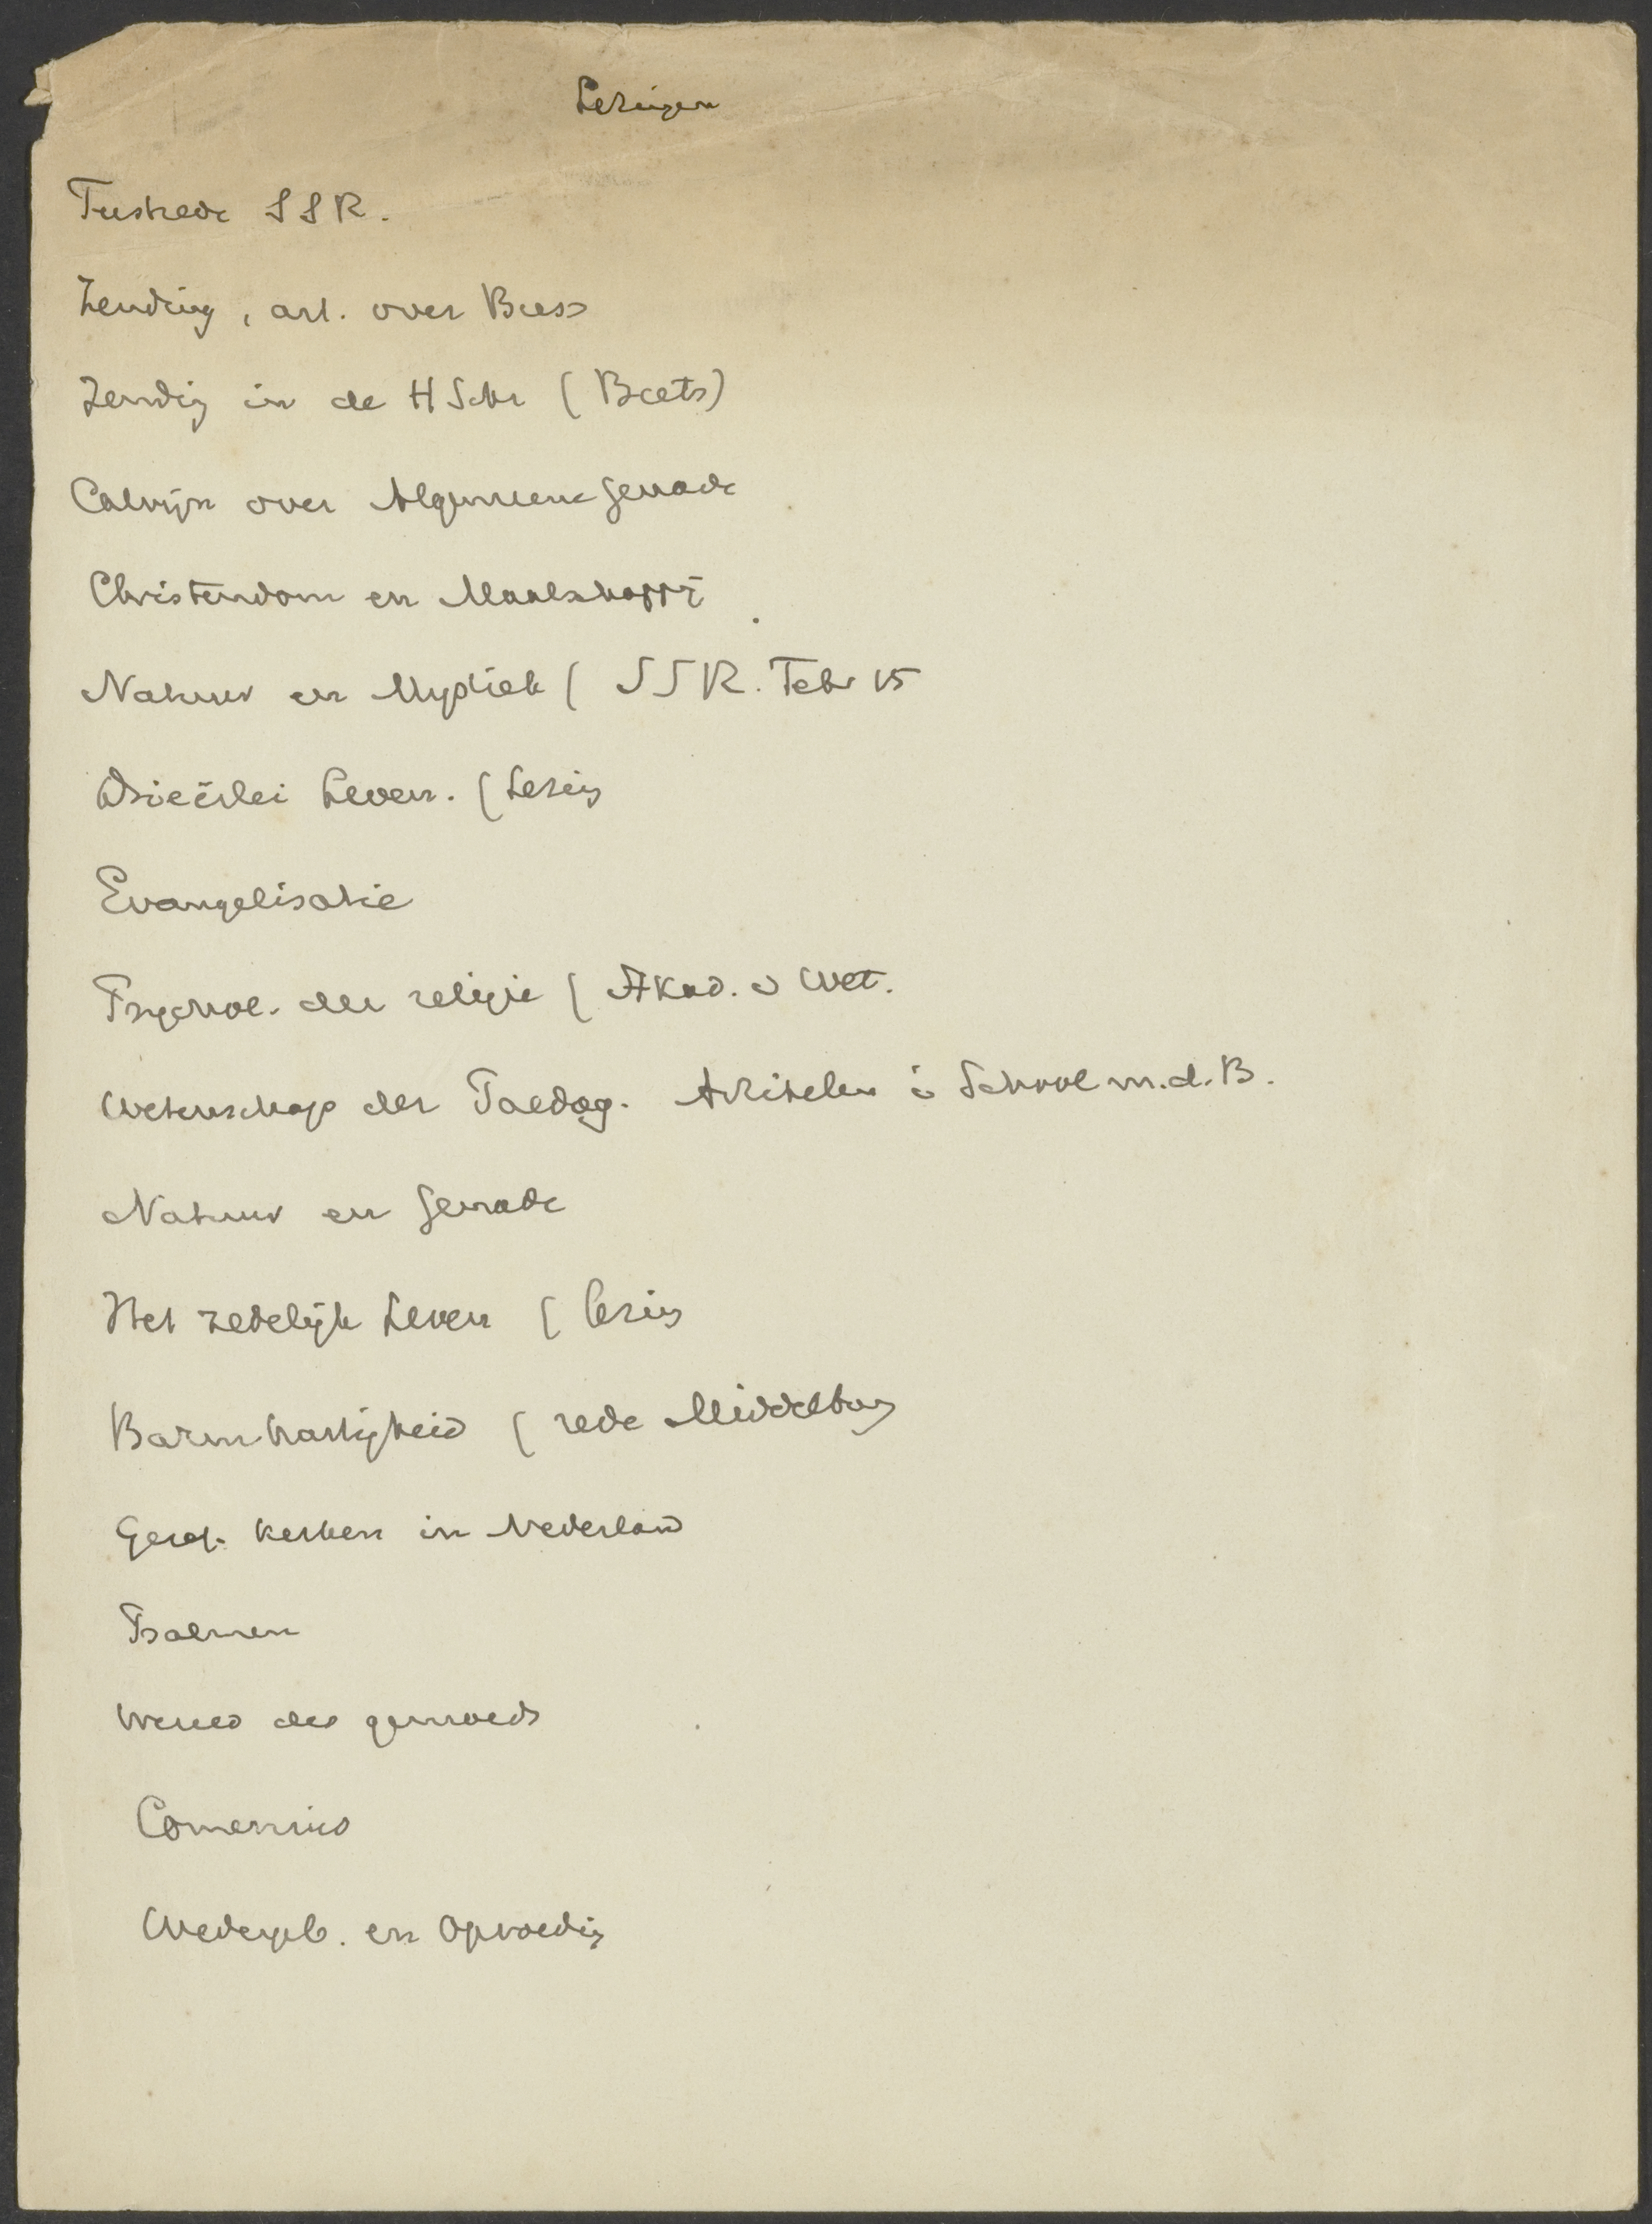 Lezingen
Feestrede SSR.
Zending, art. over Buss
Zending in de HSchr (Beets)
Calvijn over Algemeene genade
Christendom en Maatschappij
Natuur en Mystiek ( SSR. Febr 15
Drieërlei Leven. (Lezing
Evangelisatie
Psychol. der religie ( Akad. v Wet.
Wetenschap der Paedag. Artikelen i School m.d.B.
Natuur en genade
Het zedelijk Leven ( lezing
Barmhartigheid ( rede Middelburg
Geref. kerken in Nederland
Psalmen
Wereld des gemoeds
Comenius
Wedergeb. en Opvoeding